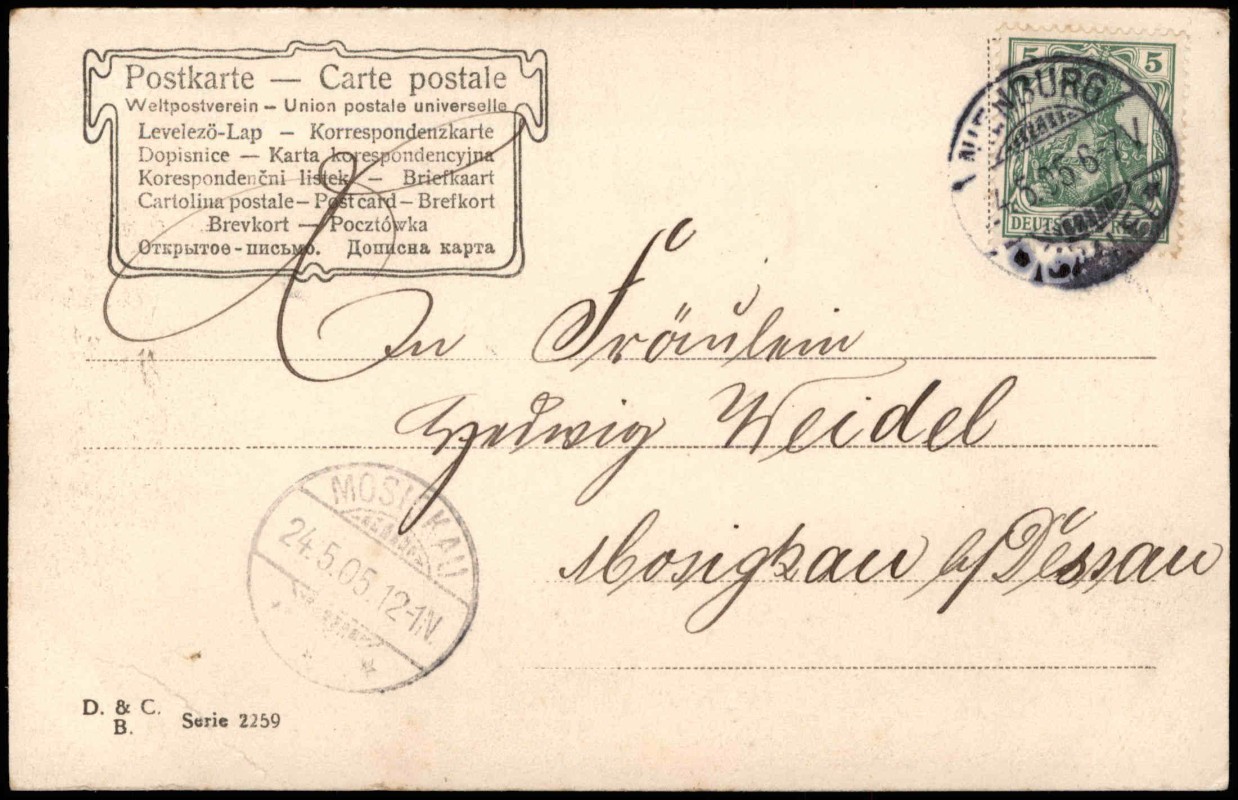 Postkarte — Carte postale
Weltpostverein – Union postale universelle
Levelezö-Lap – Korrespondenzkarte
Dopisnice — Karta korespondencyjna
Korespondenčni listek — Briefkaart
Cartolina postale – Post card – Brefkort
Brevkort — Pocztówka
Открытое-письмо. Дописна карта
5 5
DEUTSCHES REICH
5.05.6-7V
An Fräulein
Hedwig Weidel
Mosigkau b/Dessau
MOSIGKAU
24.5.05.12-1N.
D. & C.
B. Serie 2259